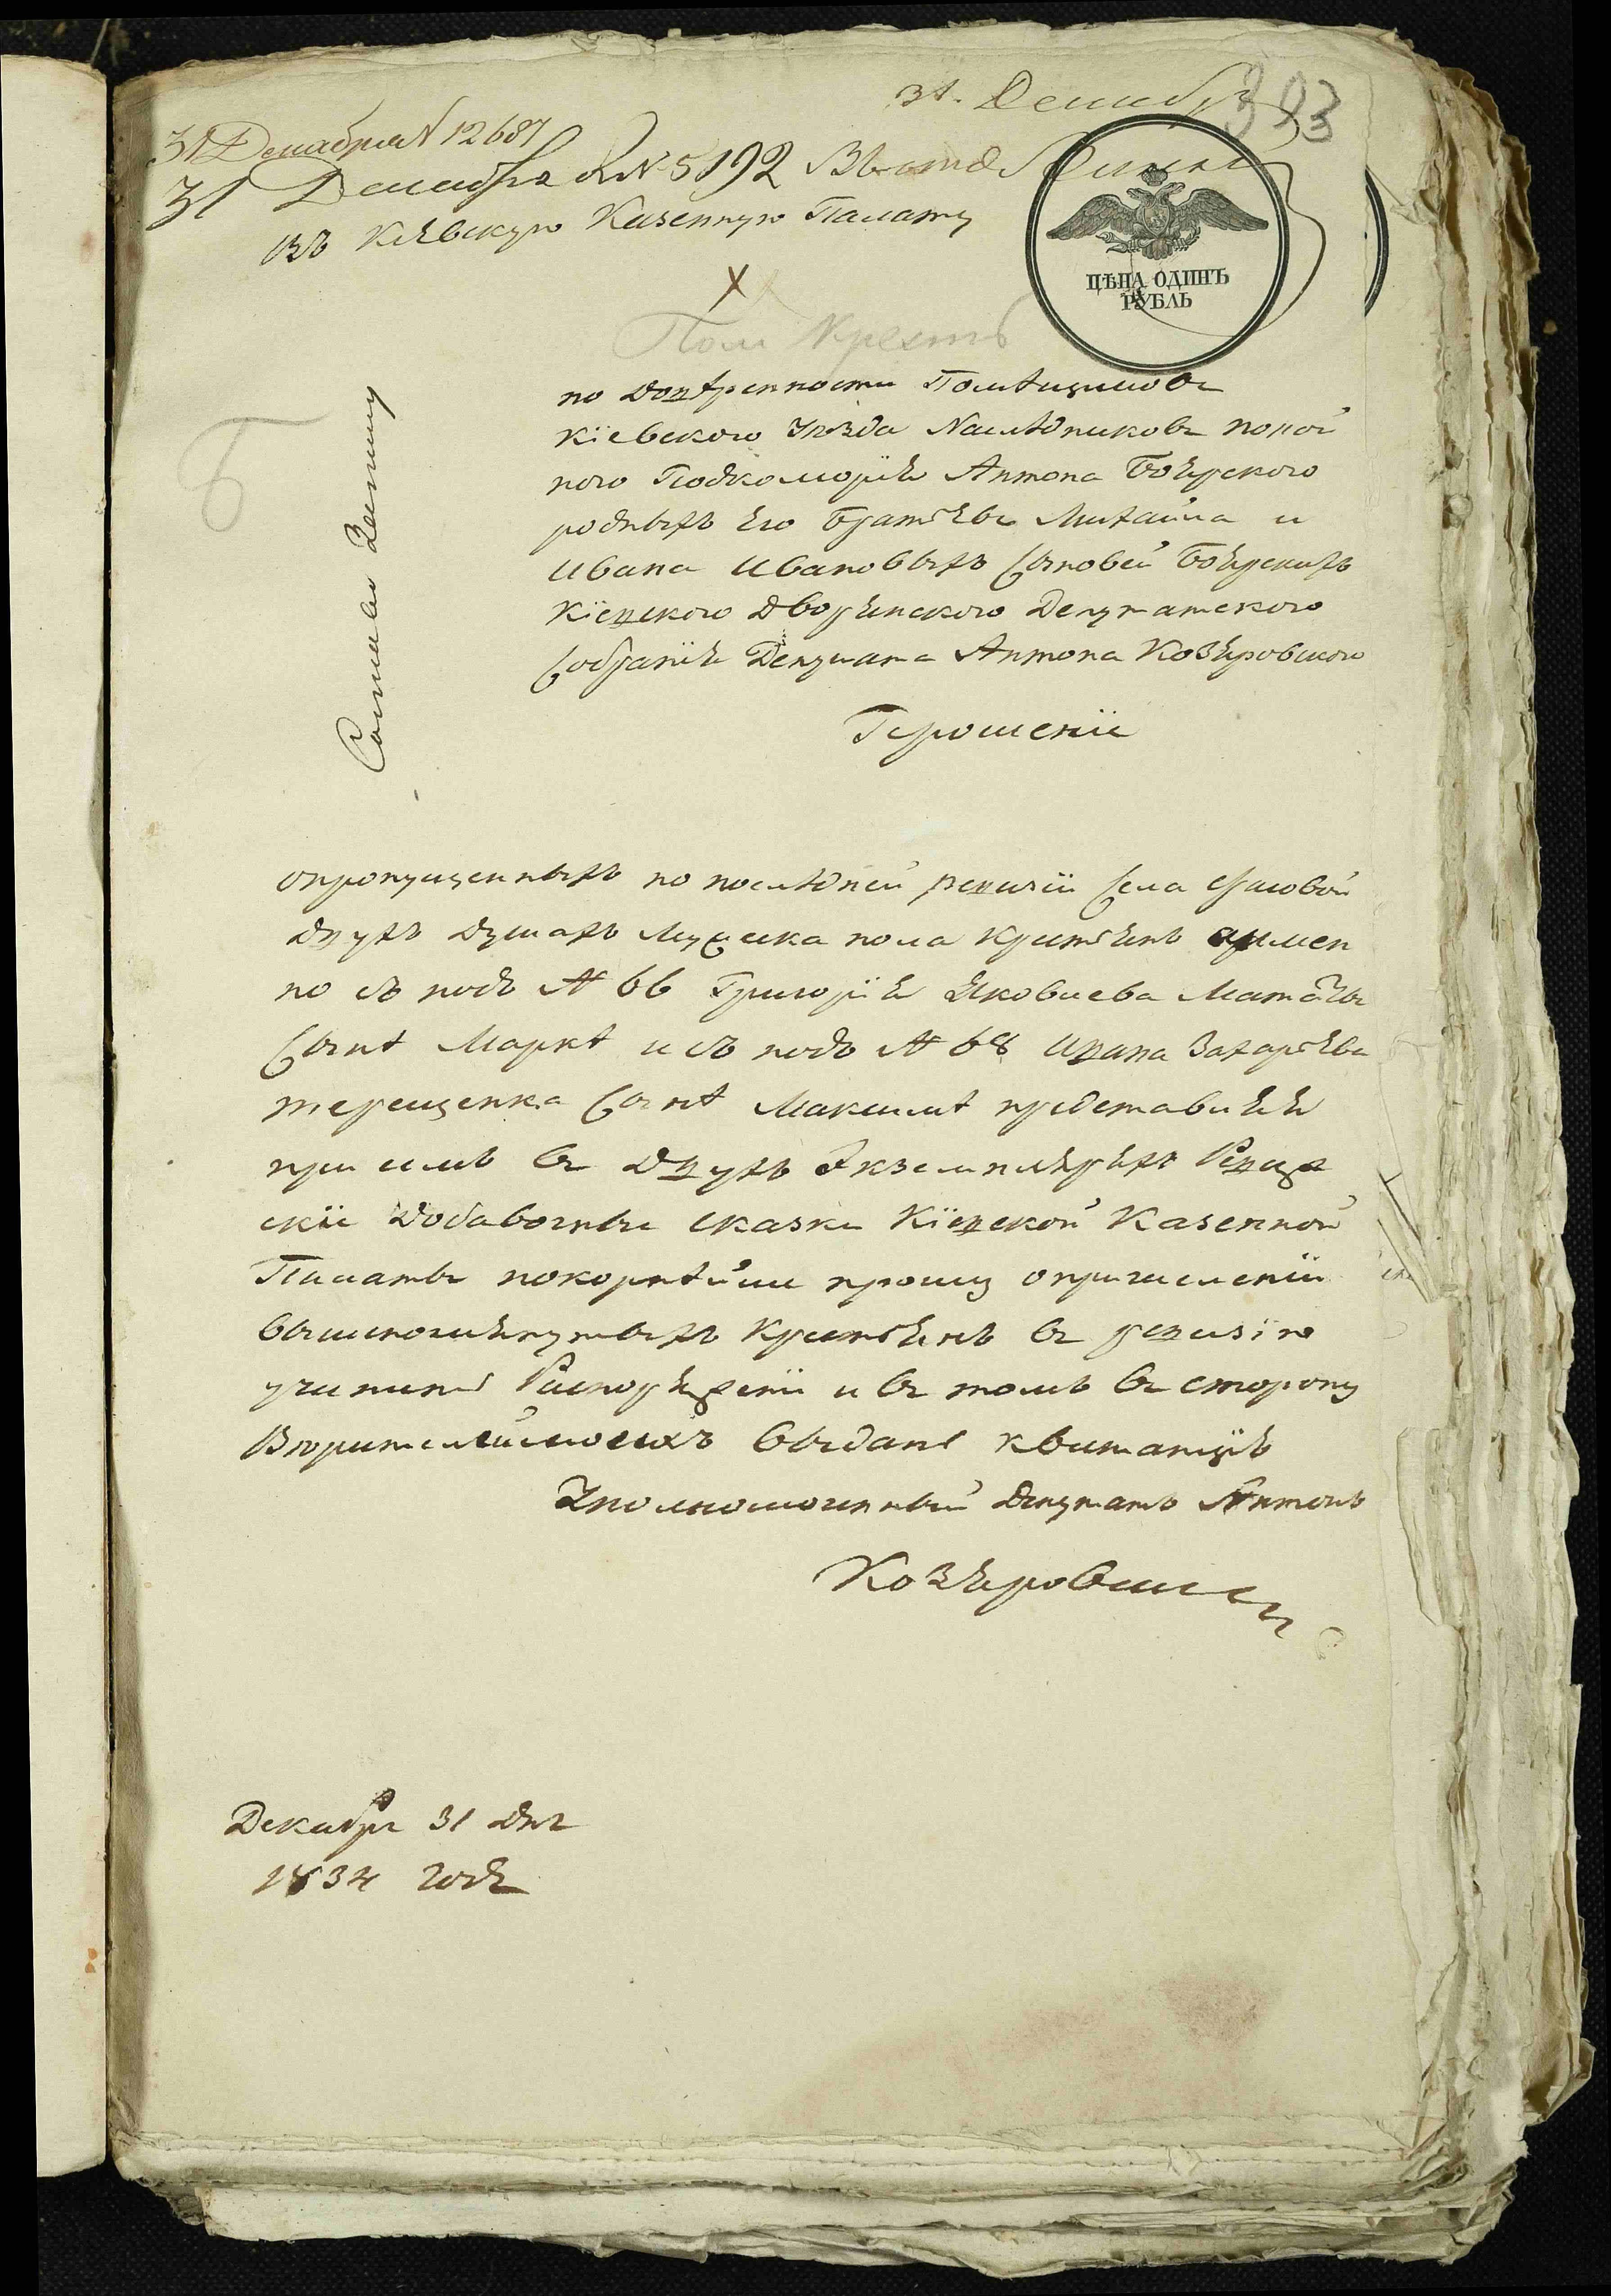 31. Декабря
393
31 Декабря № 12687
31 Декабря № 5192
въ Кіевскую Казенную Палату
ЦѢНА ОДИНЪ
РУБЛЬ
Пом Крест
по довѣренности Помѣщиковъ
Кіевского уѣзда Наслѣдниковъ покой
ного Подкоморія Антона Боярского
родныхъ его братьевъ Михайла и
Ивана Ивановыхъ Сыновей Боярскихъ
Кіевского Дворянского Депутатского
Собранія Депутата Антона Козяровского
Прошеніе
опропущенныхъ по послѣдней ревизіи Села
двухъ душахъ мужеска пола крестьянъ аимен
но съ подъ № 66 Григорія Яковлева
Сынѣ Маркѣ и съ подъ № 68 Ивана Захарьева
терещенка Сынѣ Максимѣ представляя
при семъ въ двухъ экземплярахъ Ревиз
скіе добавочные сказки Кіевской Казенной
Палаты покорнѣйше прошу опричисленіи
вышепомянутыхъ крестьянъ въ ревизію
учинить Распоряженіе и въ томъ въ сторону
Вѣрителей моихъ выдать квитанцію
Уполномоченный депутатъ Антонъ
Козяровский
Декабря 31 дня
1834 года